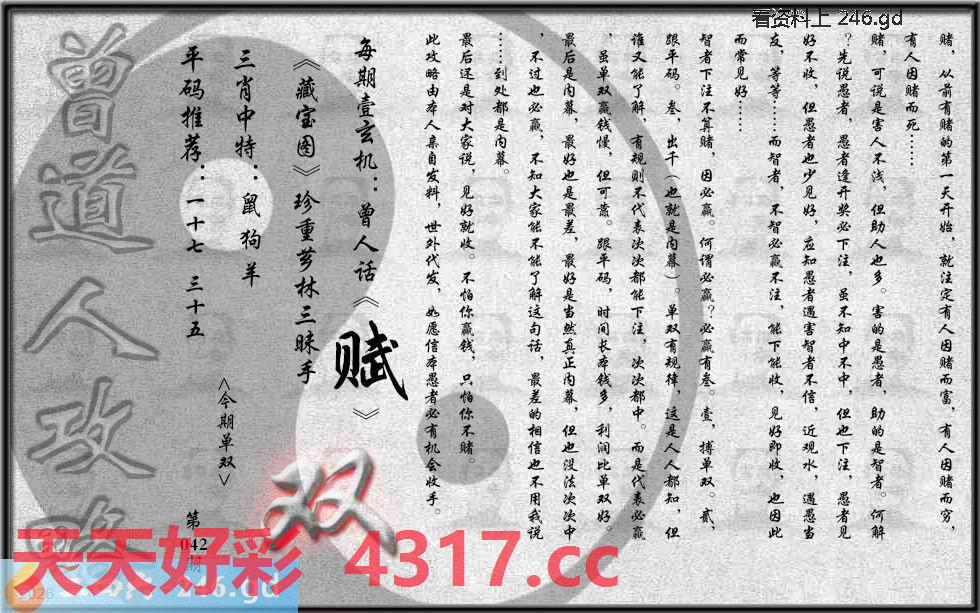 看资料上 246.gd
赌，从前有赌的第一天开始，就注定有人因赌而富，有人因赌而穷，
有人因赌而死……
赌，可说是害人不浅，但助人也多。害的是愚者，助的是智者。何解
？先说愚者，愚者逢开奖必下注，虽不知中不中，但也下注，愚者见
好不收，但愚者也少见好，应知愚者遇害智者不信，近观水，遇愚当
友，等等……而智者，不智必赢不注，能下能收，见好即收，也因此
而常见好……
智者下注不算赌，因必赢。何谓必赢？必赢有叁。壹，搏单双。贰，
跟平码。叁，出千（也就是内幕）。单双有规律，这是人人都知，但
谁又能了解，有规则不代表次次都能下注，次次都中。而是代表必赢
，虽单双赢钱慢，但可靠。跟平码，时间长本钱多，利润比单双好。
最后是内幕，最好也是最差，最好是当然真正内幕，但也没法次次中
，不过也必赢，不知大家能不能了解这句话，最差的相信也不用我说
……到处都是内幕。
最后还是对大家说，见好就收。不怕你赢钱，只怕你不赌。
此攻略由本人亲自发料，世外代发，如愿信本愚者必有机会收手。
每期壹玄机：曾人话《赋》
《藏宝图》珍重芗林三昧手
三肖中特：鼠狗羊
平码推荐：一十七 三十五
<今期单双>
双
第
042
期
曾道人攻略
天天好彩 4317.cc
246.gd
2026